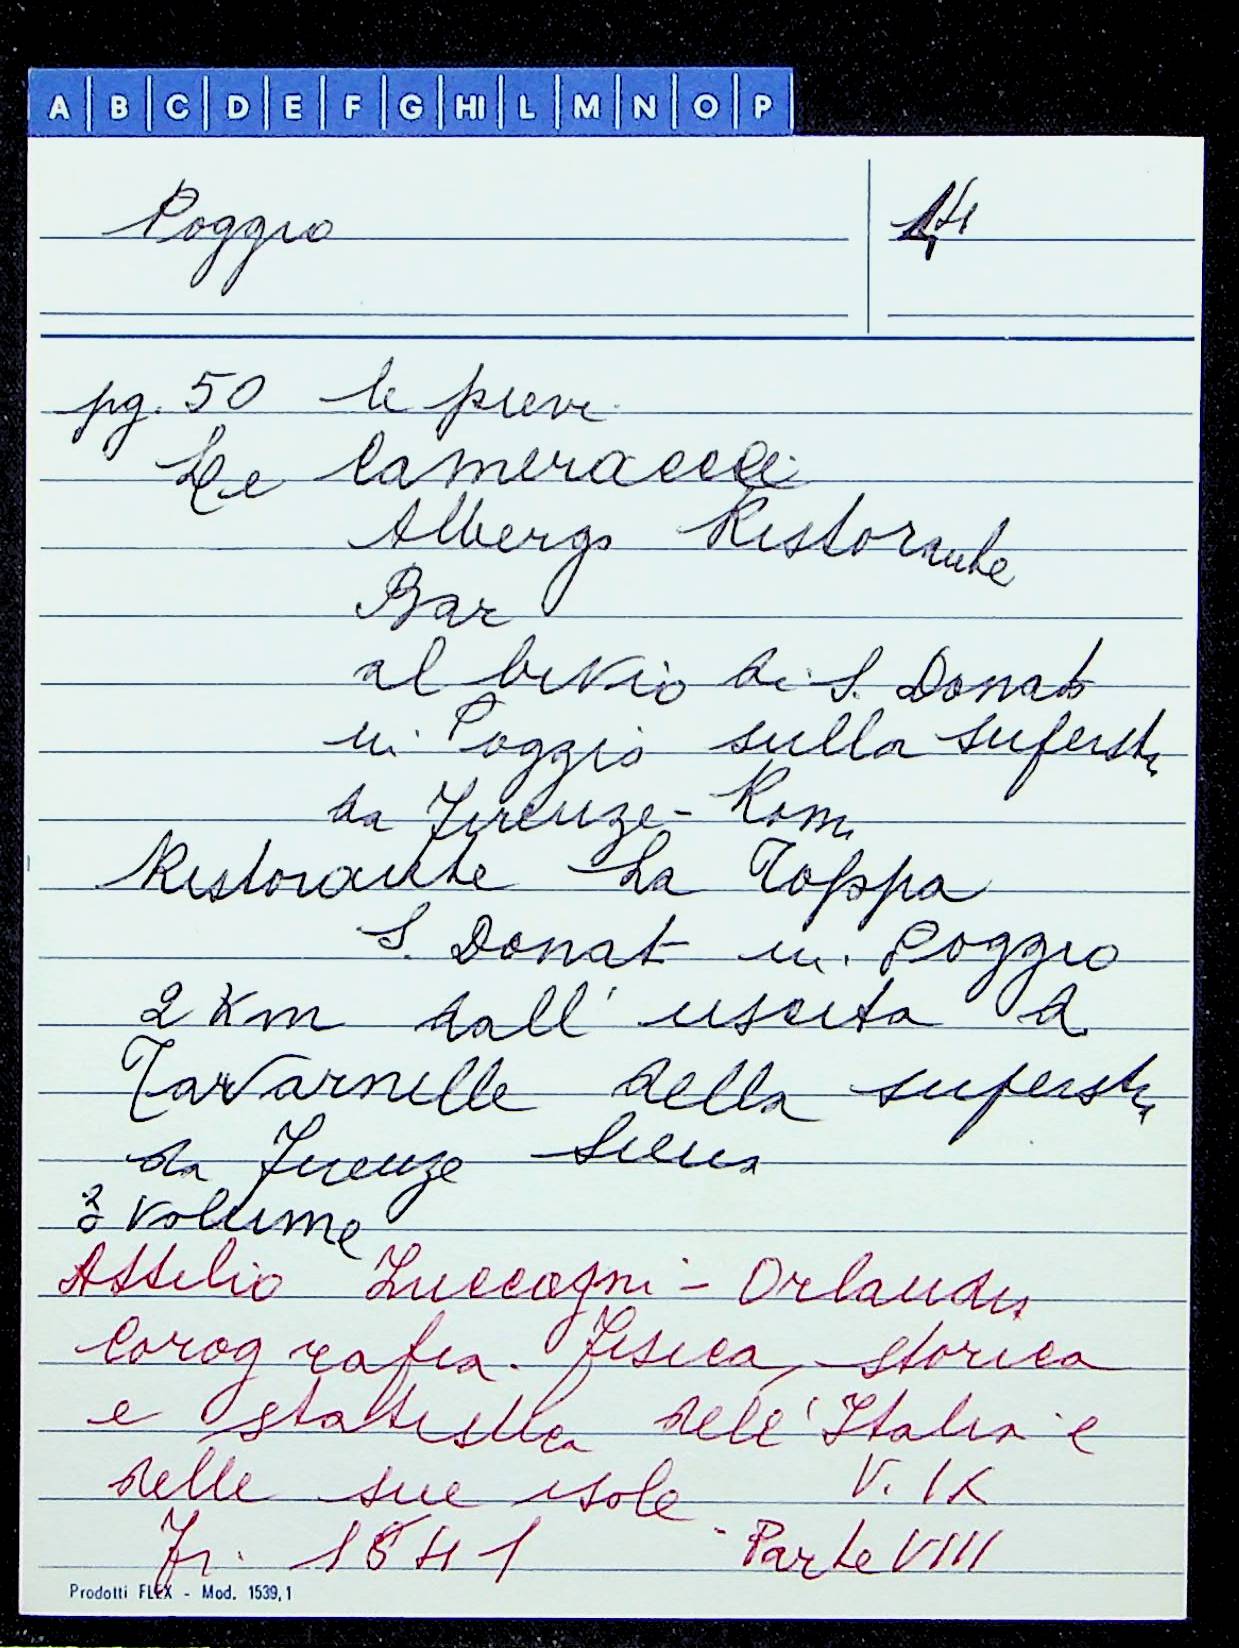 A B C D E F G HI L M N O P
Poggio
14
pg. 50 le pieve
Le Cameracce
Albergo Ristorante
Bar
al bivio di S. Donato
in Poggio sulla superst
da Firenze - Roma
Ristorante La Toppa
S. Donat in Poggio
2 Km dall' uscita d
Tavarnelle della superst
da Firenze Siena
2° Volume
Attilio Zuccagni - Orlandi
Corografia. fisica, storica
e statistica dell' Italia e
delle sue isole V. IX
Fi. 1841 - Parte VIII
Prodotti FLEX - Mod. 1539,1